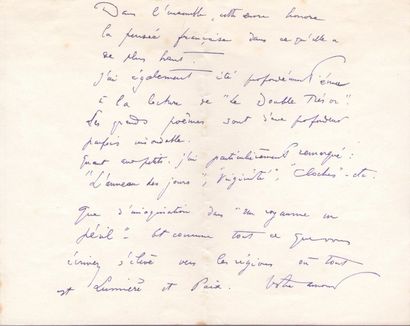 Dans l'ensemble, cette œuvre honore
la pensée française dans ce qu'elle a
de plus haut.
J'ai également été profondément émue
à la lecture de "Le Double Trésor".
Les grands poèmes sont d'une profondeur
parfois insondable.
Quant aux petits, j'ai particulièrement remarqué :
"L'anneau des jours", "Virginité", "Cloches" - etc.
Que d'imagination dans "Un royaume en
péril" - Et comme tout ce que vous
écrivez s'élève vers les régions où tout
est Lumière et Paix. Votre